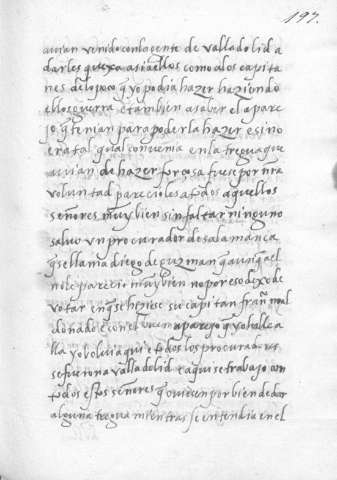 197.
avian venido con la gente de valladolid a
darles quexa asi a ellos como a los capita
nes de lo poco q yo podia hazer haziendo
ellos guerra e tambien a saber el apare
jo q tenian para poderla hazer e si no
era tal qual convenia en la tregua que
avian de hazer forçosa fuese por nra
voluntad parecioles a todos aquellos
señores muy bien sin faltar ninguno
salvo un procurador de salamanca
q se llama diego de guzman q aunq a el
no le parecio muy bien no por eso dexo de
votar en q se hiziese su capitan franco mal
donado e con el aparejo q yo halle a
lla yo bolvi aqui e todos los procuradores
se fueron a valladolid e aqui se trabajo con
todos estos señores q oviesen por bien de dar
alguna tregua mientras se entendia en el